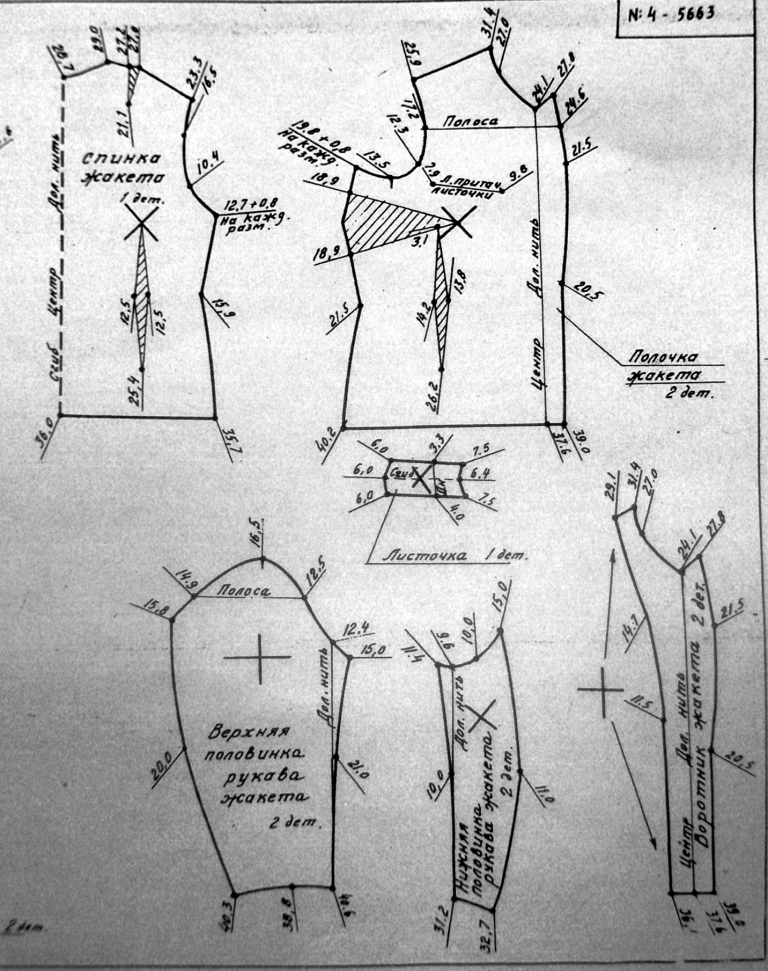 N: 4 - 5663
28.7
29.0
27.2
27.8
23.3
16.5
21.7
Спинка
жакета
1 дет.
10.4
12,7+0,8
На кажд.
разм.
Сгиб Центр Дол. нить
12,5
12,5
15,9
25,4
36.0
35,7
31.4
27.0
25,9
17.2
12.3
24.1
27.8
24.6
Полоса
21.5
19,8+0,8
На кажд.
разм.
13.5
7.9 Л. притач.
листочки
9.8
18,9
18,9
3,1
21.5
14.2
13,8
26.2
Центр Дол. нить
20,5
Полочка
жакета
2 дет.
40.2
37.6
39.0
6,0
3.3
7.5
6,0
Сгиб
Дн
6.4
6,0
4.0
7.5
Листочка 1 дет.
16,5
14.9
Полоса
12.5
15,8
12.4
15,0
Дол. нить
Верхняя
половинка
рукава
жакета
2 дет.
20,0
21.0
40.3
38,8
40.6
15,0
10,0
9.6
11.4
Дол. нить
10,0
11.0
Нижняя
половинка
рукава жакета
2 дет.
31.2
32,7
29.1
31.4
27.0
24.1
27.8
14.7
21,5
11.5
20,5
Центр Дол. нить
Воротник жакета 2 дет.
36,1
37.6
39.0
2 дет.